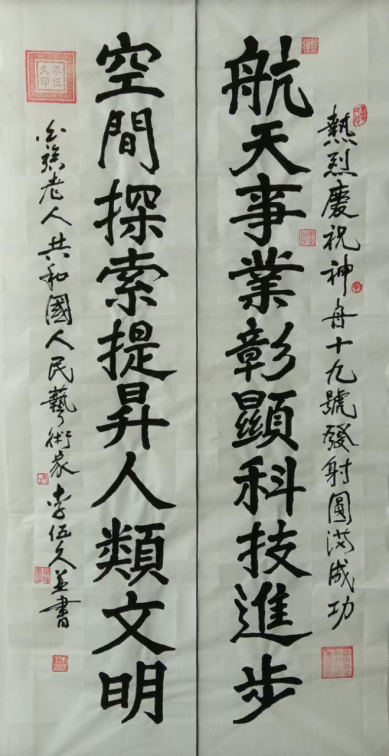 熱烈慶祝神舟十九號發射圓滿成功
航天事業彰顯科技進步
空間探索提昇人類文明
老人共和國人民藝術家李伍久並書